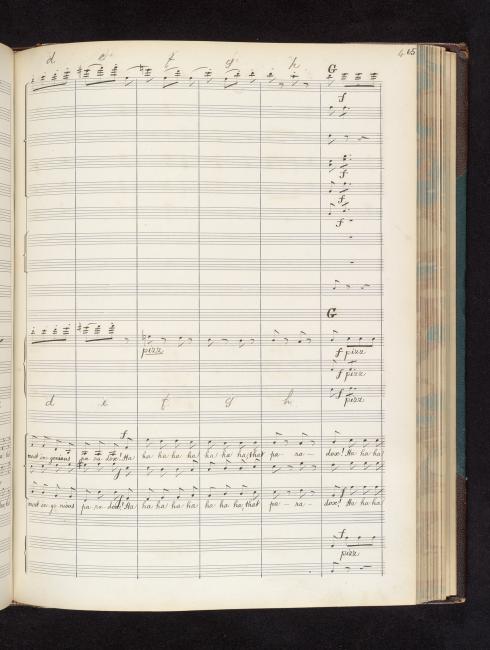 d e f g h G 4 15
f
f
f
f
G
pizz f pizz
f pizz
f pizz
d e f g h
f
most in-genious pa-ra-dox! Ha ha ha ha ha ha ha ha, that pa - ra - dox! Ha ha ha
f
most in-ge-nious pa-ra-dox! Ha ha ha ha ha ha ha ha, that pa - ra - dox! Ha ha ha
f
pizz